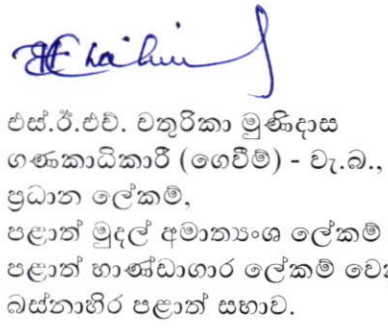 එස්.ඊ.එච්. චතුරිකා මුණිදාස
ගණකාධිකාරී (ගෙවීම්) - වැ.බ.,
ප්‍රධාන ලේකම්,
පළාත් මුදල් අමාත්‍යංශ ලේකම්
පළාත් භාණ්ඩාගාර ලේකම්
බස්නාහිර පළාත් සභාව.